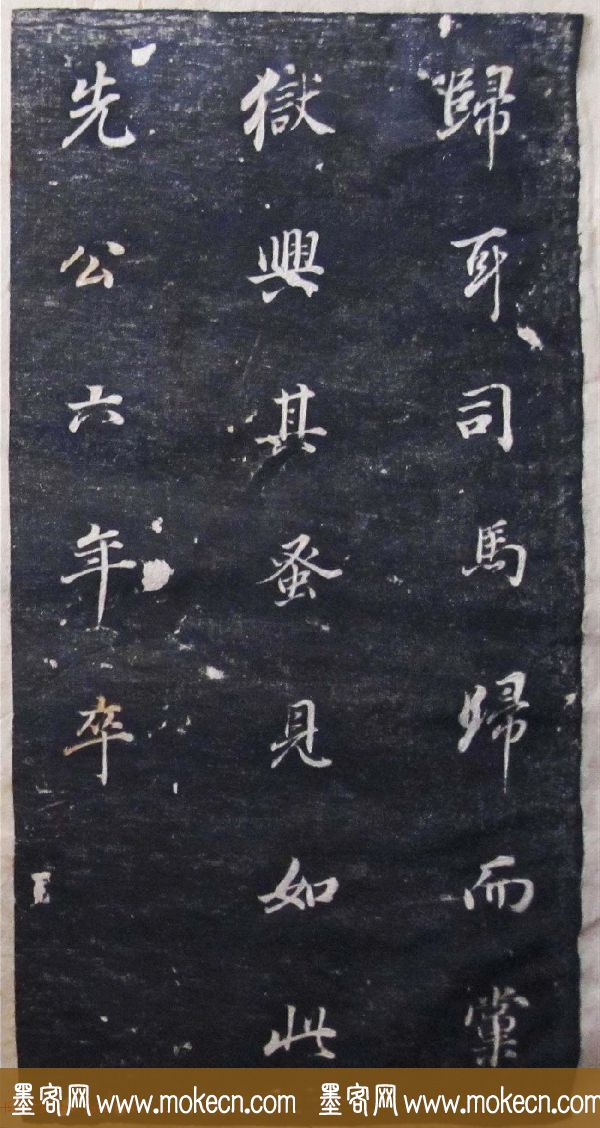 歸耳司馬歸而黨
獄興其蚤見如此
先公六年卒
墨客网 www.mokecn.com 墨客网 www.mokecn.com